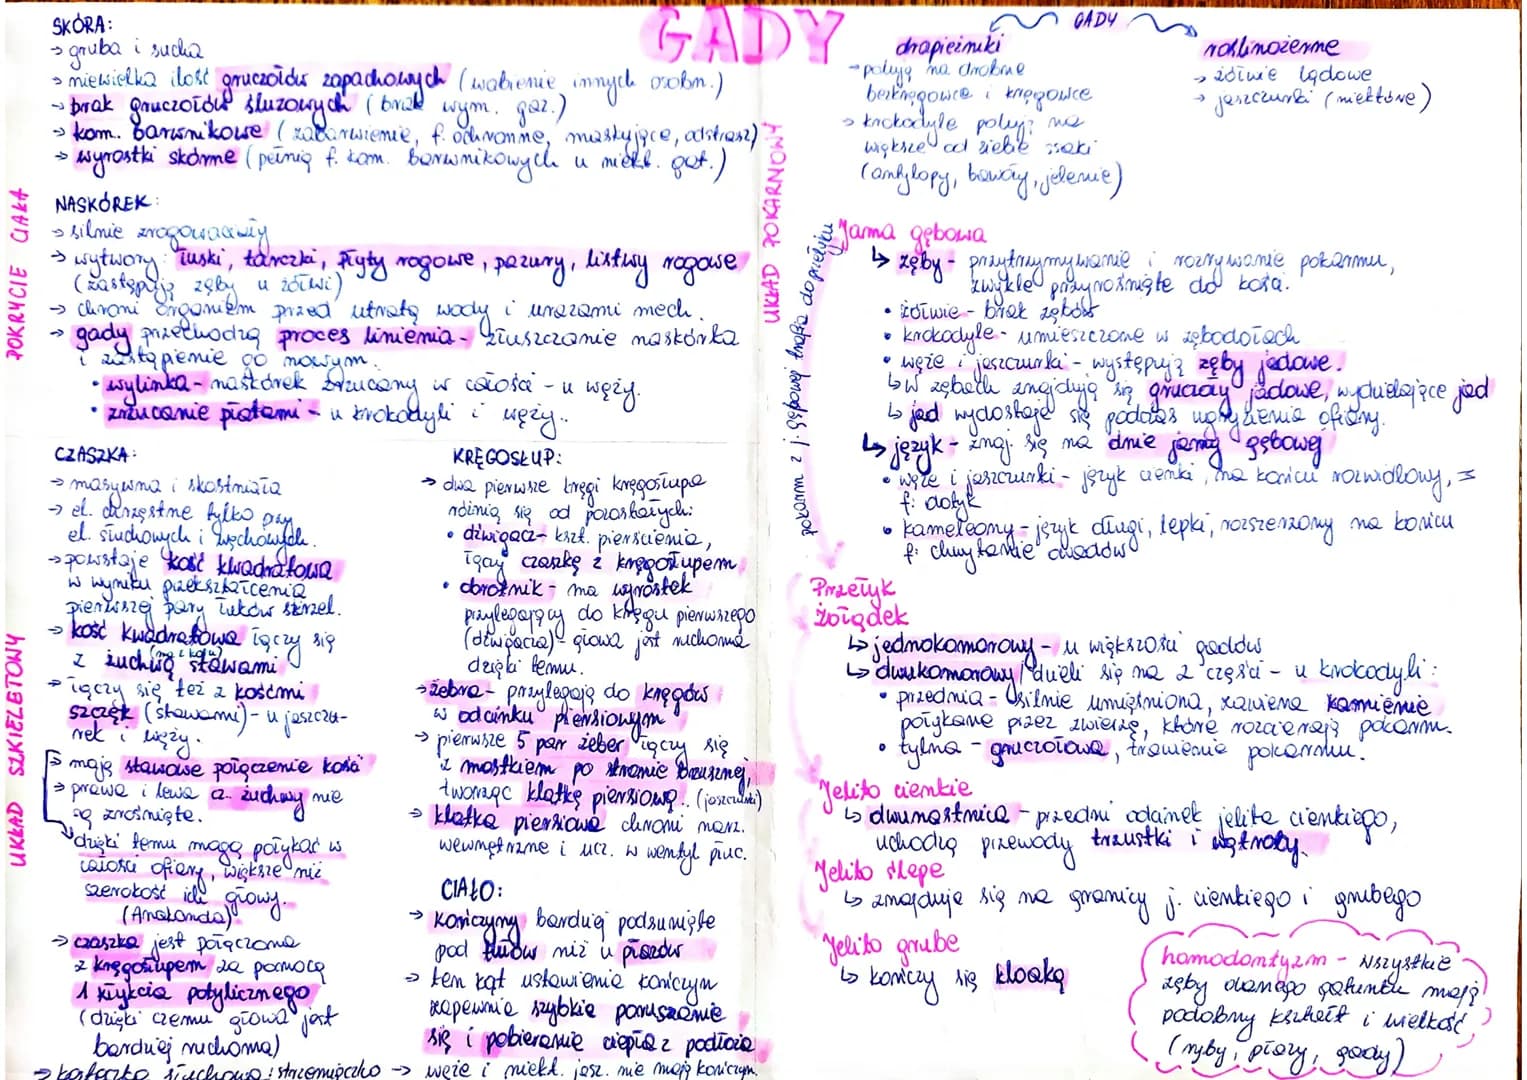 GADY
POKRYCIE CIAŁA
SKÓRA:
→ gruba i sucha
→ niewielka ilość gruczołów zapachowych (wabienie innych osobn.)
→ brak gruczołów śluzowych (brak wym. gaz.)
→ kom. barwnikowe (zabarwienie, f. ochronne, maskujące, odstrasz)
→ wyrostki skórne (pełnią f. kom. barwnikowych u niekt. gat.)
NASKÓREK:
→ silnie zrogowaciały
→ wytwory: łuski, tarczki, płyty rogowe, pazury, listwy rogowe
(zastępują zęby u żółwi)
→ chroni organizm przed utratą wody i urazami mech.
→ gady przechodzą proces linienia - złuszczanie naskórka
i zastąpienie go nowym.
• wylinka - naskórek zrzucany w całości - u węży.
• zrzucanie płatami - u krokodyli i węży..
UKŁAD SZKIELETOWY
CZASZKA:
→ masywna i skostniała
→ el. chrzęstne tylko przy
el. słuchowych i węchowych.
→ powstaje kość kwadratowa
w wyniku przekształcenia
pierwszej pary łuków skrzel.
→ kość kwadratowa łączy się
z żuchwą stawami
→ łączy się też z kośćmi
szczęk (stawami) - u jaszczu-
rek i węży.
→ mają stawowe połączenie kości
→ prawa i lewa cz. żuchwy nie
są zrośnięte.
dzięki temu mogą połykać w
całości ofiary, większe niż
szerokość ich głowy.
(Anakonda)
→ czaszka jest połączona
z kręgosłupem za pomocą
1 kłykcia potylicznego
(dzięki czemu głowa jest
bardziej ruchoma)
→ kosteczka słuchowa: strzemiączko
KRĘGOSŁUP:
→ dwa pierwsze kręgi kręgosłupa
różnią się od pozostałych:
• dźwigacz - kszt. pierścienia,
łączy czaszkę z kręgosłupem
• obrotnik - ma wyrostek
przylegający do kręgu pierwszego
(dźwigacza) - głowa jest ruchoma
dzięki temu.
→ żebra - przylegają do kręgów
w odcinku piersiowym
→ pierwsze 5 par żeber łączy się
z mostkiem po stronie brzusznej,
tworząc klatkę piersiową.. (jaszczurki)
→ klatka piersiowa chroni narz.
wewnętrzne i ucz. w wentyl płuc.
CIAŁO:
→ Kończyny bardziej podsunięte
pod tułów niż u płazów
→ ten kąt ustawienia kończyn
zapewnia szybkie poruszanie
się i pobieranie ciepła z podłoża
→ węże i niekt. jasz. nie mają kończyn.
UKŁAD POKARMOWY
GADY
drapieżniki
→ polują na drobne
bezkręgowce i kręgowce
→ krokodyle polują na
większe od siebie ssaki
(antylopy, bawoły, jelenie)
roślinożerne
→ żółwie lądowe
→ jaszczurki (niektóre)
pokarm z j. gębowej trafia do przełyku
Jama gębowa
↳ zęby - przytrzymywanie i rozrywanie pokarmu,
zwykle przyrośnięte do kości.
• żółwie - brak zębów
• krokodyle - umieszczone w zębodołach
• węże i jaszczurki - występują zęby jadowe.
↳ w zębach znajdują się gruczoły jadowe, wydzielające jad
↳ jad wydostaje się podczas ugryzienia ofiary.
↳ język - znaj. się na dnie jamy gębowej
• węże i jaszczurki - język cienki, na końcu rozwidlony, =
f: dotyk
• kameleony - język długi, lepki, rozszerzony na końcu
f: chwytanie owadów
Przełyk
Żołądek
↳ jednokomorowy - u większości gadów
↳ dwukomorowy / dzieli się na 2 części - u krokodyli:
• przednia - silnie umięśniona, zawiera kamienie
połykane przez zwierzę, które rozcierają pokarm.
• tylna - gruczołowa, trawienie pokarmu.
Jelito cienkie
↳ dwunastnica - przedni odcinek jelita cienkiego,
uchodzą przewody trzustki i wątroby.
Jelito ślepe
↳ znajduje się na granicy j. cienkiego i grubego
Jelito grube
↳ kończy się kloaką
homodontyzm - wszystkie
zęby danego gatunku mają
podobny kształt i wielkość
(ryby, płazy, gady)